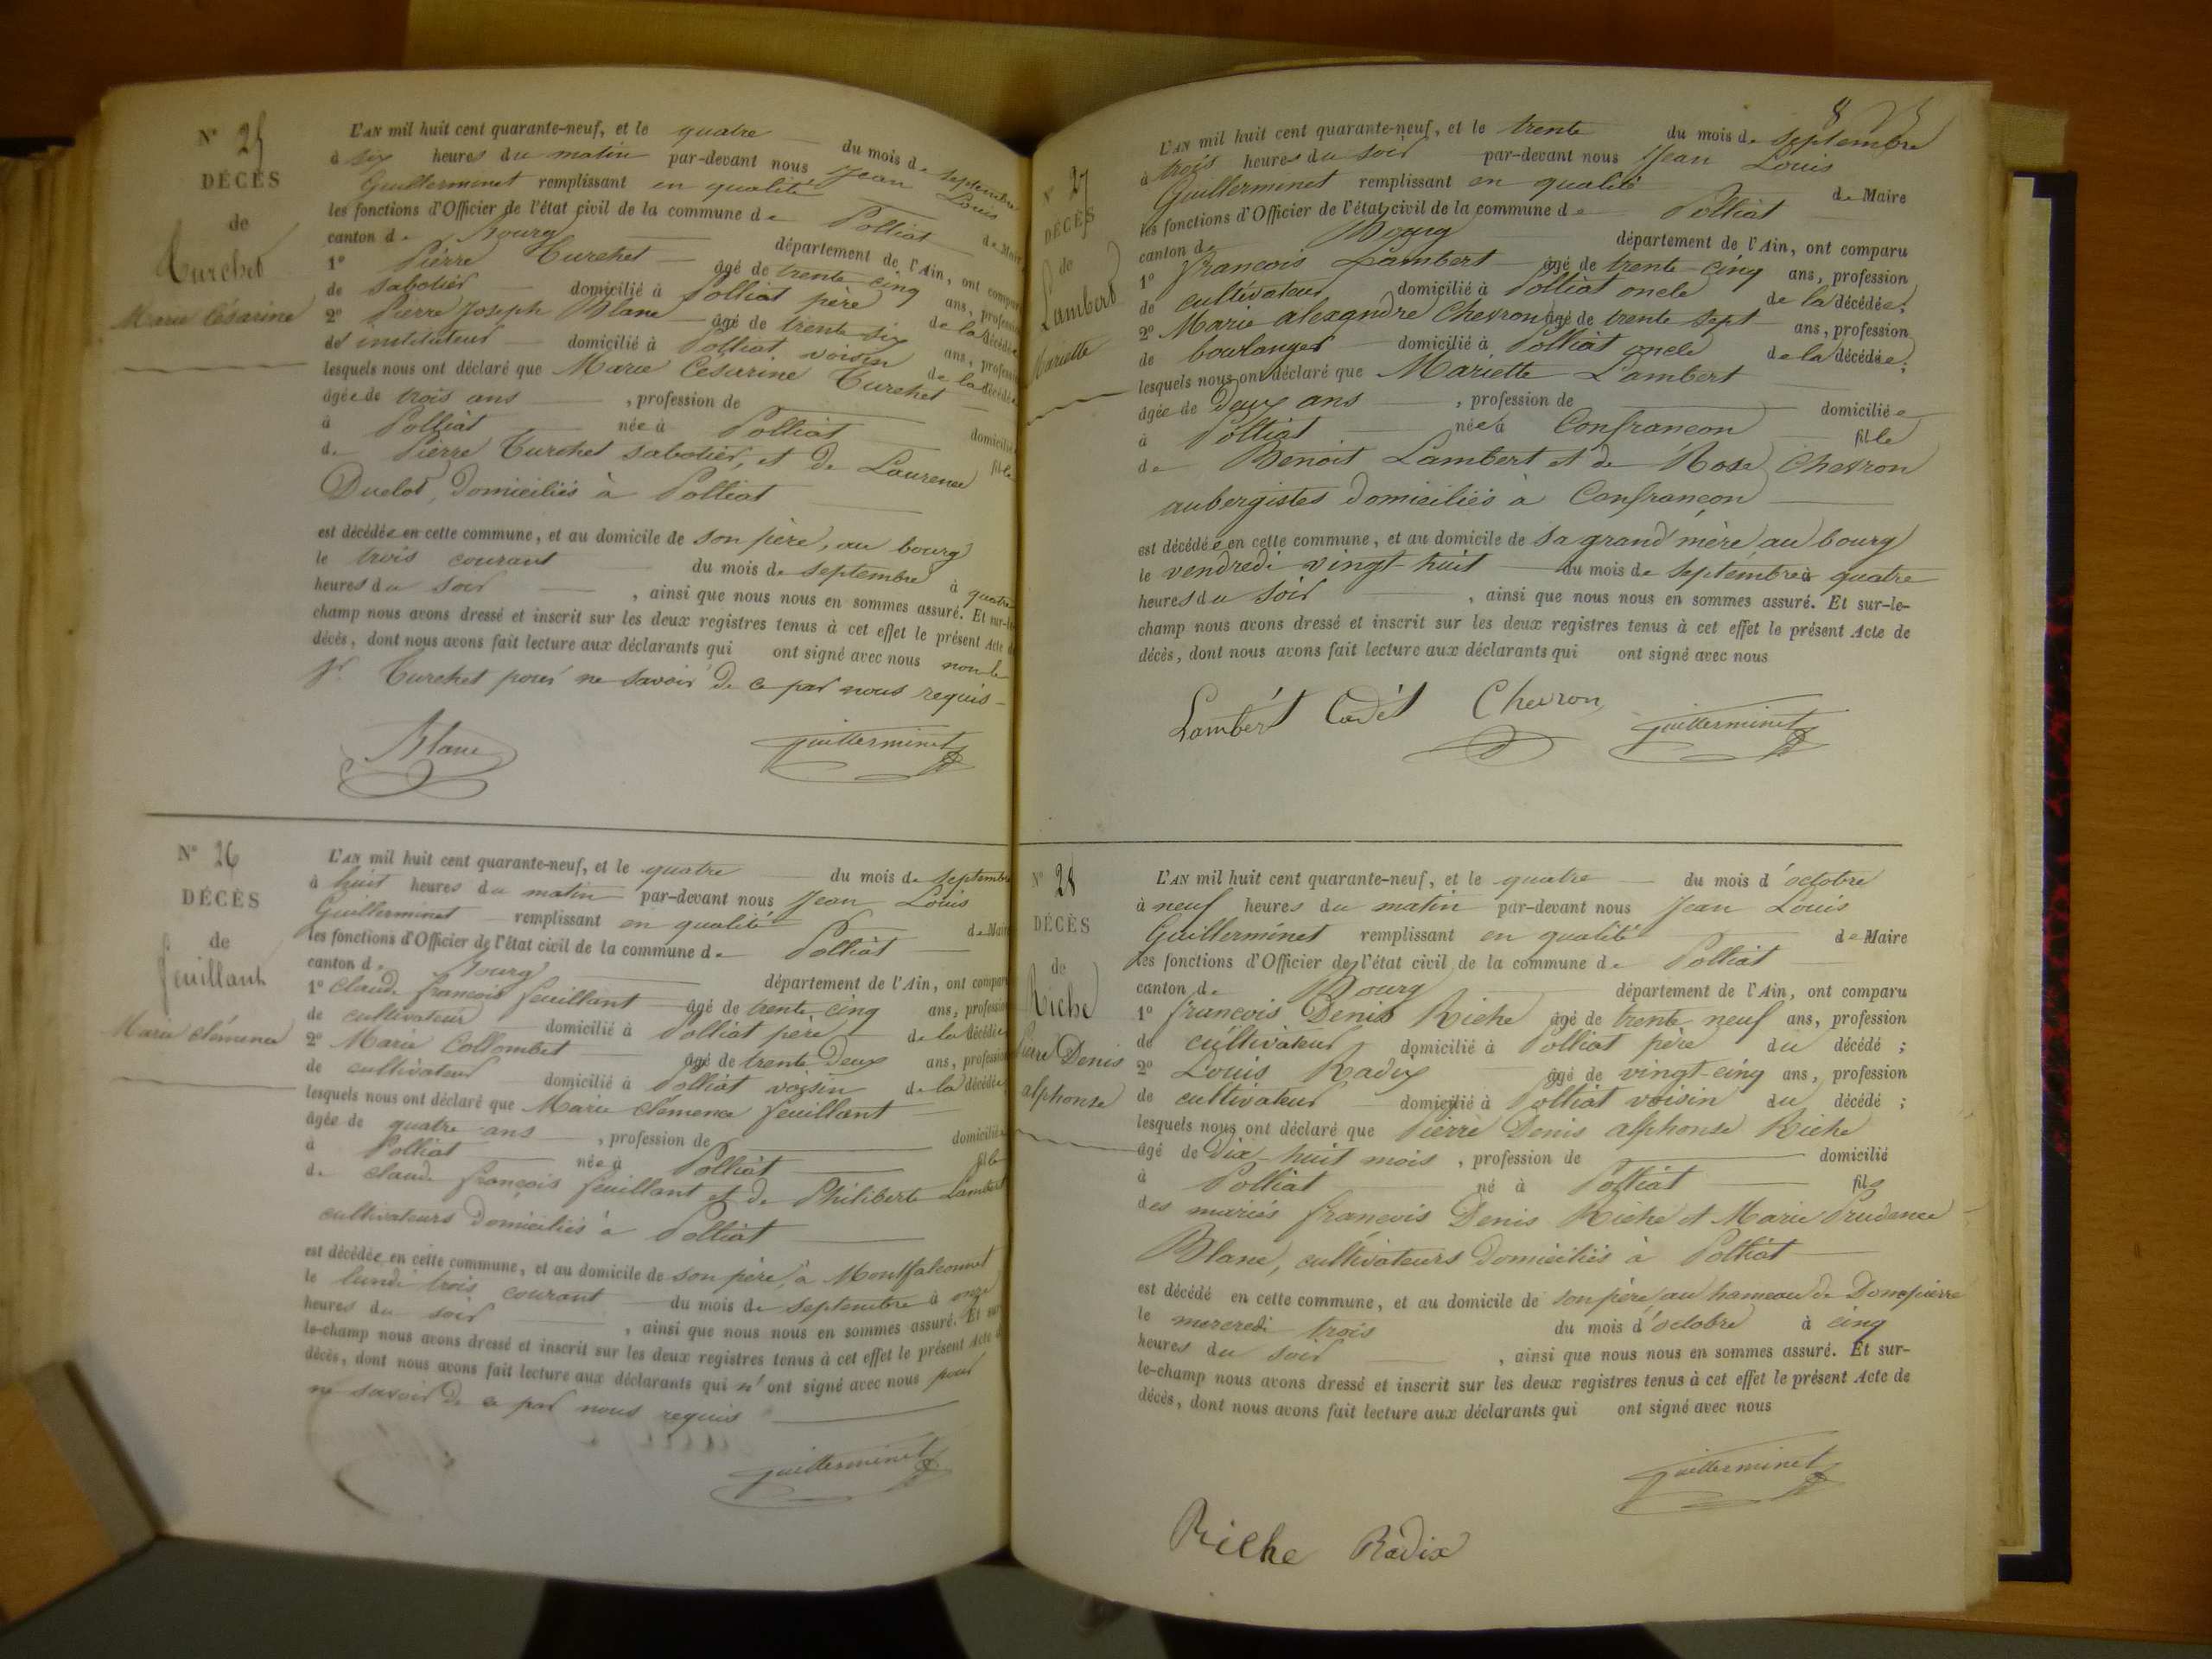 N° 25
DÉCÈS
de
Turchet
Marie Césarine
L'AN mil huit cent quarante-neuf, et le quatre du mois de septembre
à six heures du matin par-devant nous Jean Louis
Guillerminet remplissant en qualité de Maire
les fonctions d'Officier de l'état civil de la commune de Polliat
canton de Bourg département de l'Ain, ont comparu
1° Pierre Turchet âgé de trente cinq ans, profession
de sabotier domicilié à Polliat père de la décédée
2° Pierre Joseph Blanc âgé de trente six ans, profession
de instituteur domicilié à Polliat voisin de la décédée
lesquels nous ont déclaré que Marie Cesarine Turchet
âgée de trois ans , profession de domicilié
à Polliat née à Polliat fille
de Pierre Turchet sabotier, et de Laurence
Duclot, domiciliés à Polliat
est décédée en cette commune, et au domicile de son père, au bourg
le trois courant du mois de septembre à quatre
heures du soir , ainsi que nous nous en sommes assuré. Et sur-le-
champ nous avons dressé et inscrit sur les deux registres tenus à cet effet le présent Acte de
décès, dont nous avons fait lecture aux déclarants qui ont signé avec nous non le
Sr. Turchet pour ne savoir de ce par nous requis
Blanc Guillerminet
N° 26
DÉCÈS
de
feuillant
Marie clémence
L'AN mil huit cent quarante-neuf, et le quatre du mois de septembre
à huit heures du matin par-devant nous Jean Louis
Guillerminet remplissant en qualité de Maire
les fonctions d'Officier de l'état civil de la commune de Polliat
canton de Bourg département de l'Ain, ont comparu
1° Claude françois feuillant âgé de trente cinq ans, profession
de cultivateur domicilié à Polliat père de la décédée
2° Marie Collombet âgé de trente deux ans, profession
de cultivateur domicilié à Polliat voisin de la décédée
lesquels nous ont déclaré que Marie clémence feuillant
âgée de quatre ans , profession de domiciliée
à Polliat née à Polliat fille
de claude françois feuillant et de Philiberte Lambert
cultivateurs domiciliés à Polliat
est décédée en cette commune, et au domicile de son père, à Montfalconnet
le lundi trois courant du mois de septembre à onze
heures du soir , ainsi que nous nous en sommes assuré. Et sur-
le-champ nous avons dressé et inscrit sur les deux registres tenus à cet effet le présent Acte de
décès, dont nous avons fait lecture aux déclarants qui n'ont signé avec nous pour
ne savoir de ce par nous requis
Guillerminet
N° 27
DÉCÈS
de
Lambert
Mariette
L'AN mil huit cent quarante-neuf, et le trente du mois de septembre
à trois heures du soir par-devant nous Jean Louis
Guillerminet remplissant en qualité de Maire
les fonctions d'Officier de l'état civil de la commune de Polliat
canton de Bourg département de l'Ain, ont comparu
1° francois Lambert âgé de trente cinq ans, profession
de cultivateur domicilié à Polliat oncle de la décédée;
2° Marie alexandre Chevron âgé de trente sept ans, profession
de boulanger domicilié à Polliat oncle de la décédée;
lesquels nous ont déclaré que Mariette Lambert
âgée de Deux ans , profession de domiciliée
à Polliat née à Confrancon fille
de Benoit Lambert et de Rose Chevron
aubergistes domiciliés à Confrançon
est décédée en cette commune, et au domicile de sa grand'mère au bourg
le vendredi vingt huit du mois de septembre à quatre
heures du soir , ainsi que nous nous en sommes assuré. Et sur-le-
champ nous avons dressé et inscrit sur les deux registres tenus à cet effet le présent Acte de
décès, dont nous avons fait lecture aux déclarants qui ont signé avec nous
Lambert Cadet Chevron Guillerminet
N° 28
DÉCÈS
de
Riche
Pierre Denis
alphonse
L'AN mil huit cent quarante-neuf, et le quatre du mois d'octobre
à neuf heures du matin par-devant nous Jean Louis
Guillerminet remplissant en qualité de Maire
les fonctions d'Officier de l'état civil de la commune de Polliat
canton de Bourg département de l'Ain, ont comparu
1° francois Denis Riche âgé de trente neuf ans, profession
de cultivateur domicilié à Polliat père du décédé ;
2° Louis Radix âgé de vingt-cinq ans, profession
de cultivateur domicilié à Polliat voisin du décédé ;
lesquels nous ont déclaré que Pierre Denis alphonse Riche
âgé de Dix huit mois , profession de domicilié
à Polliat né à Polliat fils
des mariés francois Denis Riche et Marie Prudence
Blanc, cultivateurs domiciliés à Polliat
est décédé en cette commune, et au domicile de son père au hameau de Dompierre
le mercredi trois du mois d'octobre à cinq
heures du soir , ainsi que nous nous en sommes assuré. Et sur-
le-champ nous avons dressé et inscrit sur les deux registres tenus à cet effet le présent Acte de
décès, dont nous avons fait lecture aux déclarants qui ont signé avec nous
Guillerminet
Riche Radix